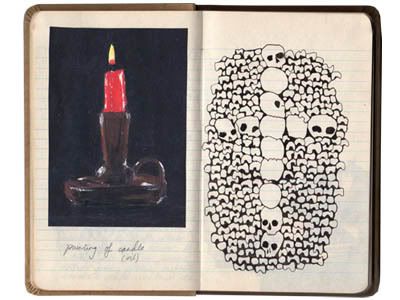 painting of candle
(oil)